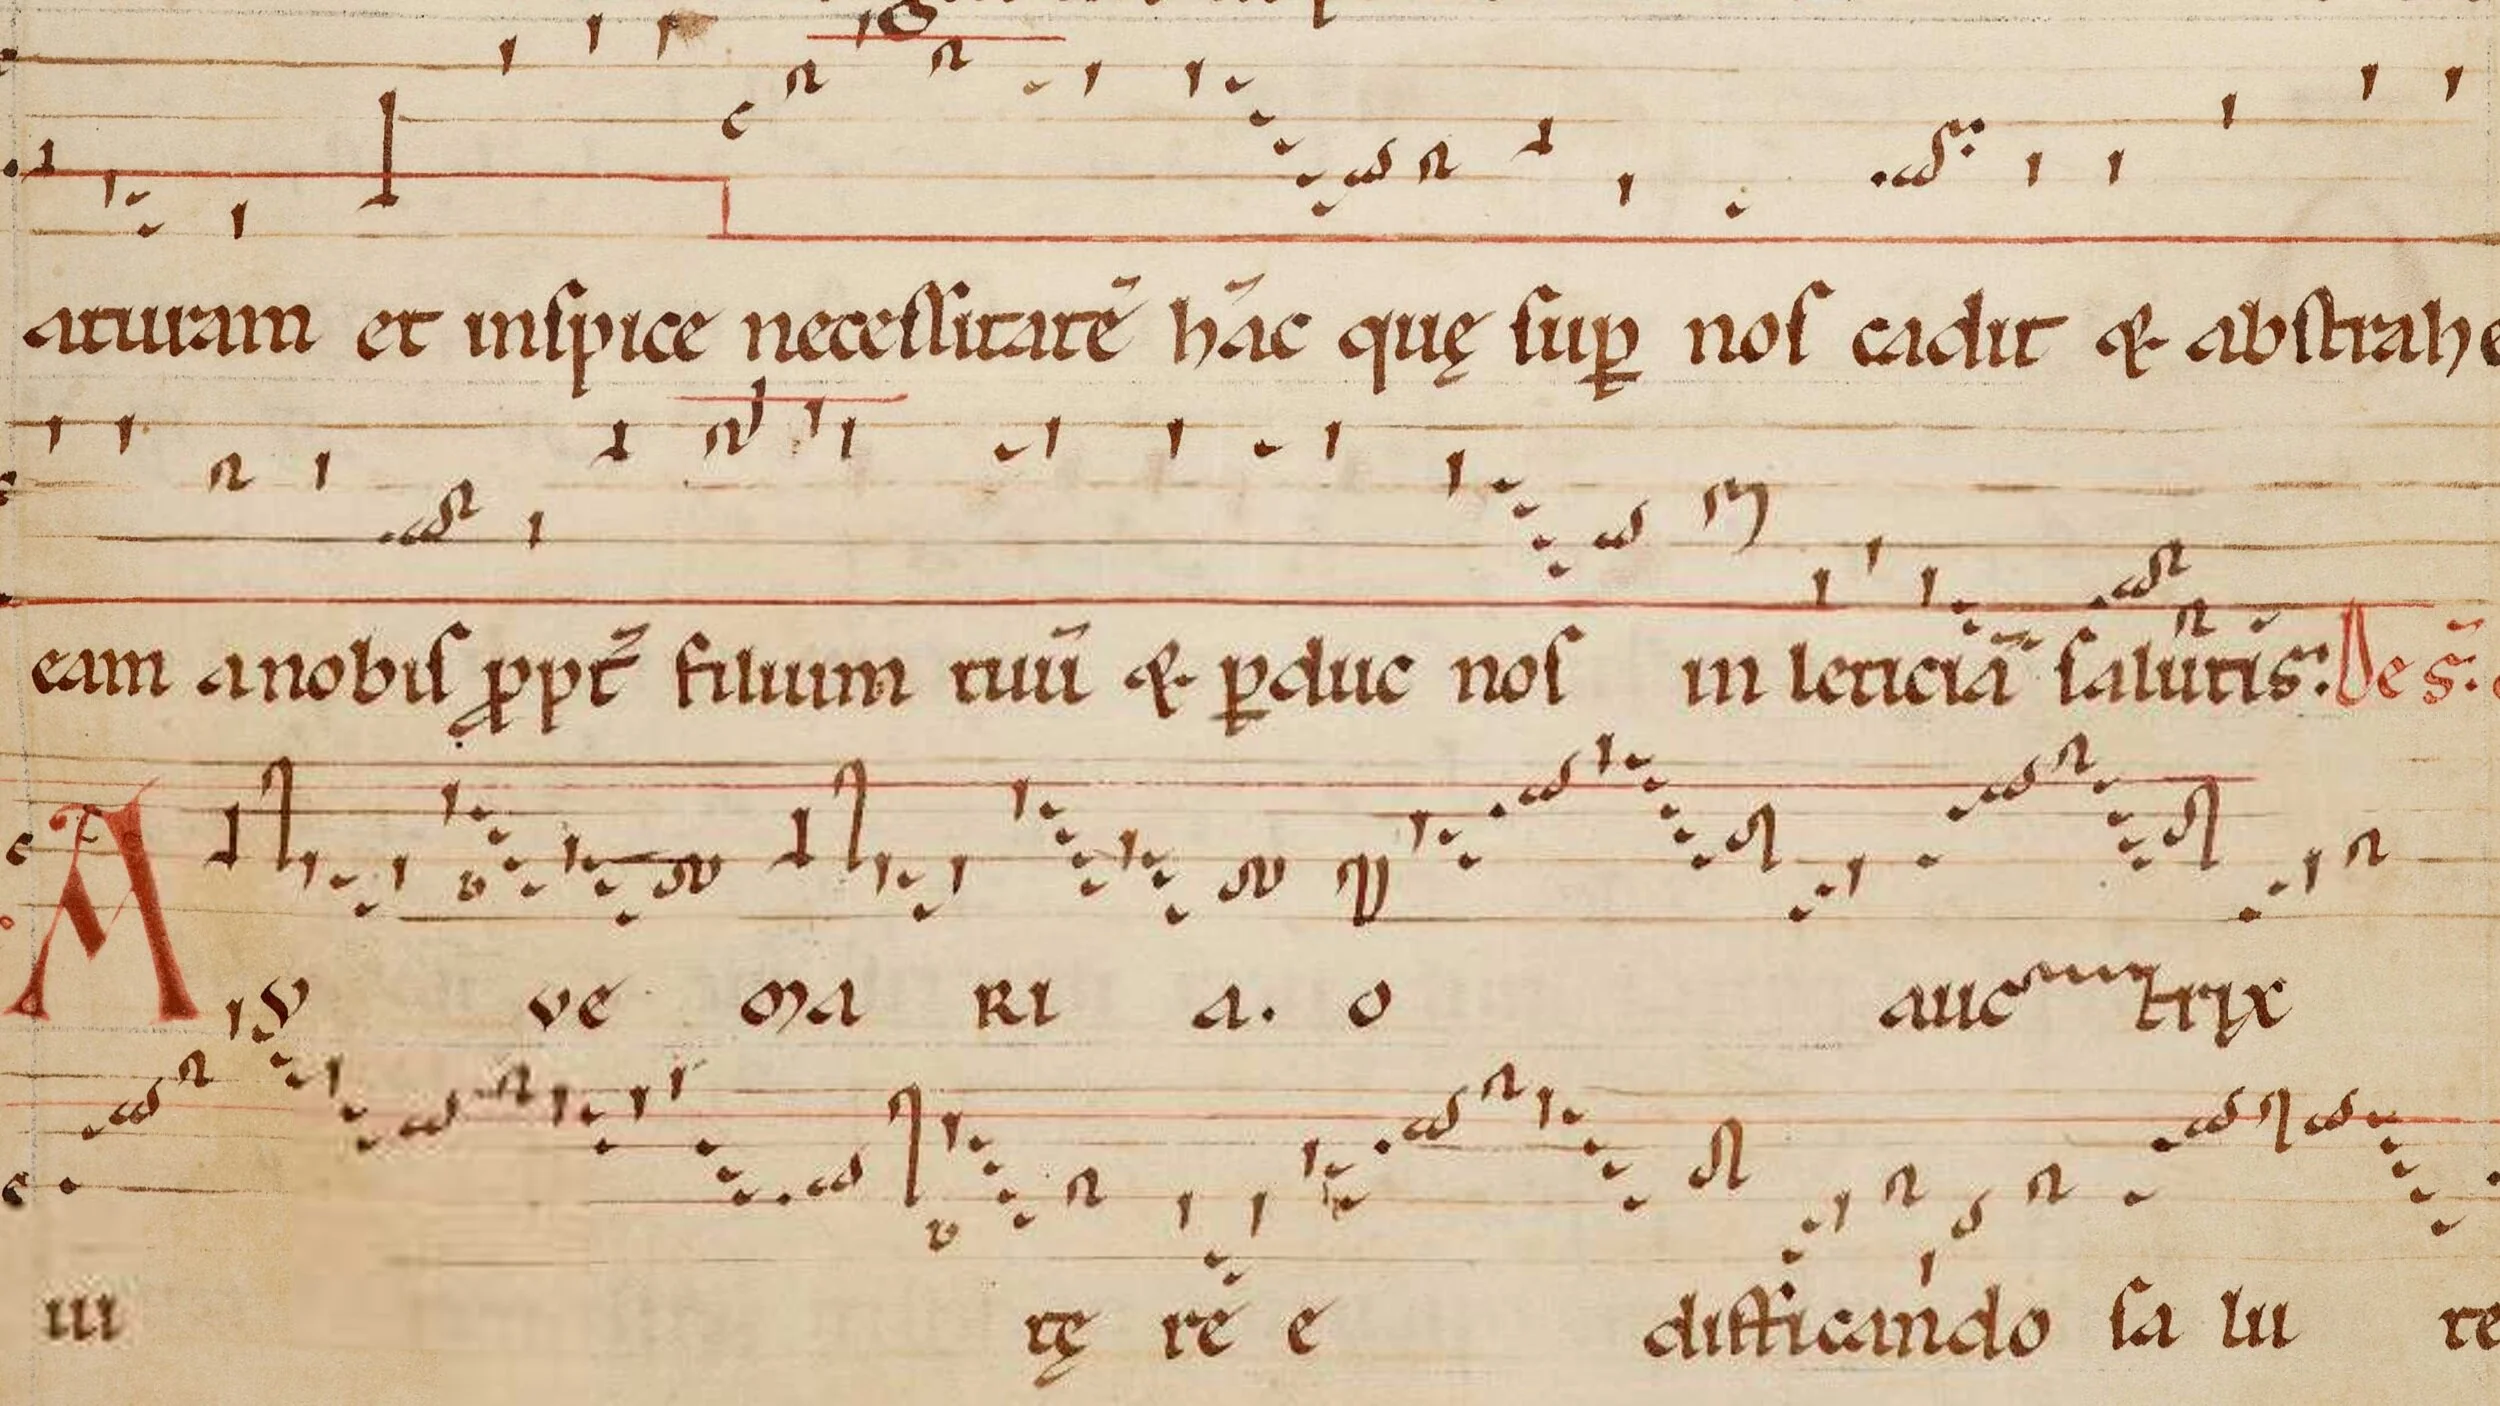 aturam et inspice necessitatē hāc quę sup nos cadit & abstrahe
eam a nobis ppt filium tuū & pduc nos in leticiā salutis: De s̄:
A ve MA RI a. o auctrix
tę rē e dificando sa lu te